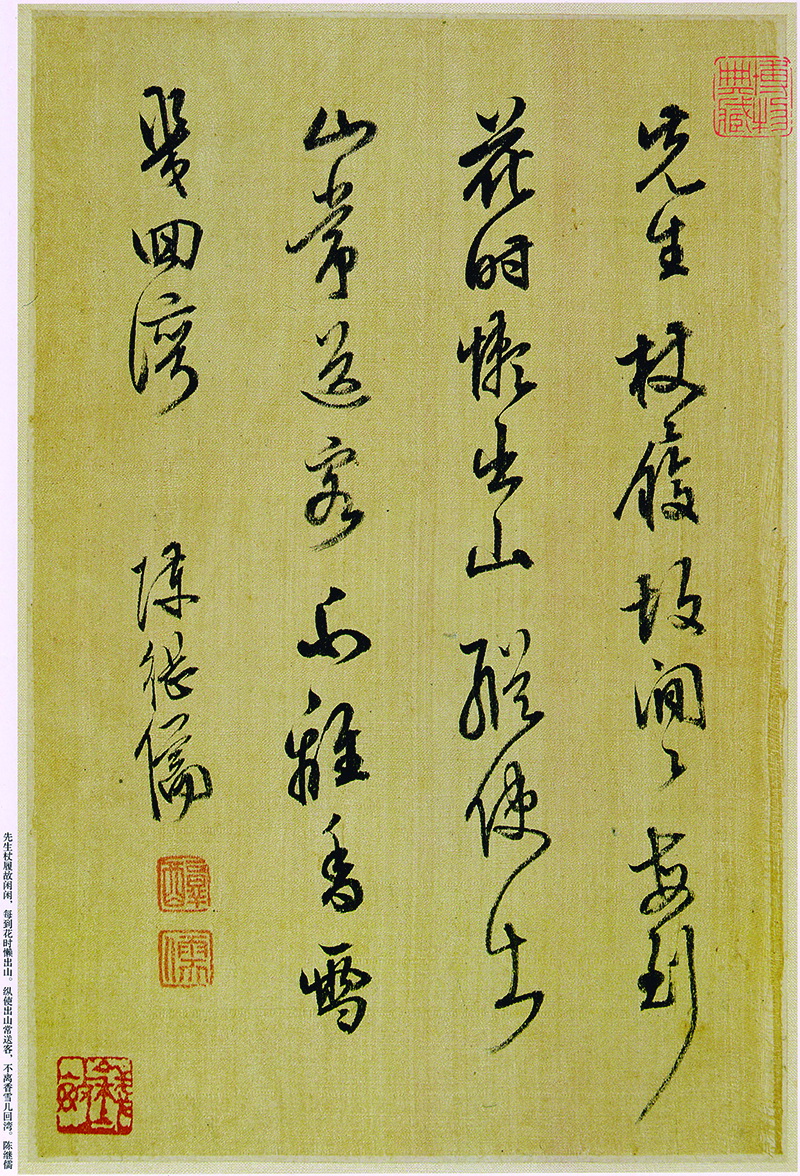 博物典藏
先生杖履故閒〻每到
花時懶出山縱使出
山常送客不離香雪
幾回灣 陳繼儒
醇
儒
先生杖履故闲闲，每到花时懒出山。纵使出山常送客，不离香雪几回湾。陈继儒